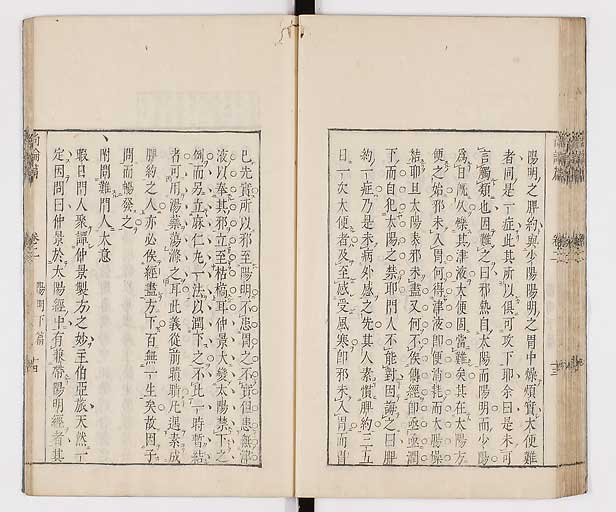 陽明之脾約與少陽陽明之胃中燥煩實大便難
者同是一症此其所以俱可攻下耶余曰是未可
言觸類也因難之曰邪熱自太陽而陽明而少陽
為日既久爍其津液大便固當難矣其在太陽方
便之始邪未入胃何得津液即便消耗而大腸燥
結耶且太陽表邪未盡又何不俟傳經即亟亟潤
下而自犯太陽之禁耶門人不能對因誨之曰脾
約一症乃是未病外感之先其人素慣脾約三五
日一次大便者及至感受風寒即邪未入胃而胃
已先實所以邪至陽明不患胃之不實但患無津
液以奉其邪立至枯槁耳仲景大變太陽禁下之
例而另立麻仁丸一法以潤下之不比一時暫結
者可用湯藥蕩滌之耳此義從前聵聵凡遇素成
脾約之人亦必俟經盡方下百無一生矣故因子
問而暢發之
附問難門人大意
暇日門人聚譚仲景製方之妙主伯亞旅天然一
定因問曰仲景於太陽經中有兼帶陽明經者其
尚論篇
卷二
陽明下篇
十四